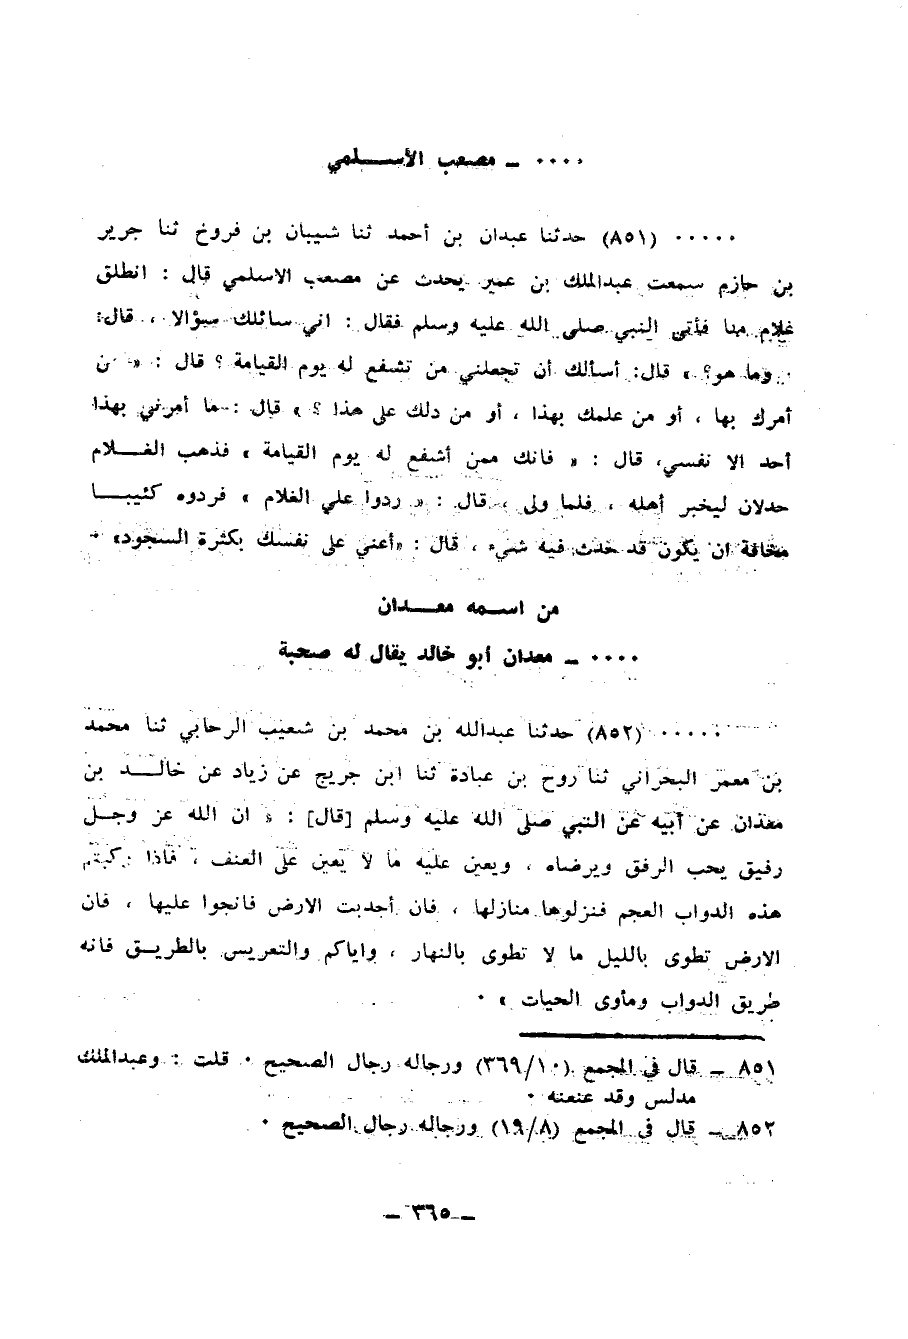 ٠٠٠٠ ـ مصعب الأســلمي
٠٠٠٠٠ (٨٥١) حدثنا عبدان بن أحمد ثنا شيبان بن فروخ ثنا جرير
بن حازم سمعت عبدالملك بن عمير يحدث عن مصعب الاسلمي قال : انطلق
غلام منا فأتى النبي صلى الله عليه وسلم فقال : اني سائلك سؤالا ، قال:
وما هو؟ » قال: أسألك أن تجعلني من تشفع له يوم القيامة ؟ قال : «
أمرك بها ، أو من علمك بهذا ، أو من دلك على هذا ؟ » قال : ما أمرني بهذا
أحد الا نفسي، قال : « فانك ممن أشفع له يوم القيامة » فذهب الغــلام
حدلان ليخبر أهله ، فلما ولى ، قال : « ردوا علي الغلام » فردوه كئيبــا
مخافة ان يكون قد حدث فيه شيء ، قال : «أعني على نفسك بكثرة السجود» ٠
من اســمه معــدان
٠٠٠٠ ـ معدان أبو خالد يقال له صحبة
٠٠٠٠٠ (٨٥٢) حدثنا عبدالله بن محمد بن شعيب الرحابي ثنا محمد
بن معمر البحراني ثنا روح بن عبادة ثنا ابن جريج عن زياد عن خالــد بن
معدان عن أبيه عن النبي صلى الله عليه وسلم [قال] : « ان الله عز وجــل
رفيق يحب الرفق ويرضاه ، ويعين عليه ما لا يعين على العنف ، فاذا ركبتم
هذه الدواب العجم فنزلوها منازلها ، فان أجدبت الارض فانجوا عليها ، فان
الارض تطوى بالليل ما لا تطوى بالنهار ، واياكم والتعريس بالطريــق فانه
طريق الدواب ومأوى الحيات » ٠
٨٥١ ـ قال في المجمع (٣٦٩/١٠) ورجاله رجال الصحيح ٠ قلت : وعبدالملك
مدلس وقد عنعنه ٠
٨٥٢ ـ قال في المجمع (١٩/٨) ورجاله رجال الصحيح ٠
ـ ٣٦٥ ـ